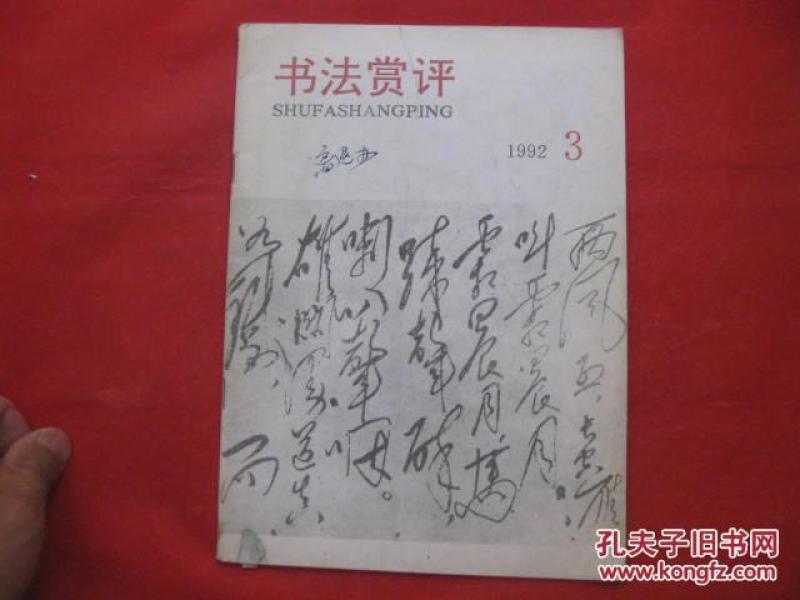 书法赏评
SHUFASHANGPING
1992 3
西风烈，长空雁
叫霜晨月。
霜晨月，馬
蹄聲碎，
喇叭聲咽。
雄关漫道真
如铁，而
孔夫子旧书网
www.kongfz.com